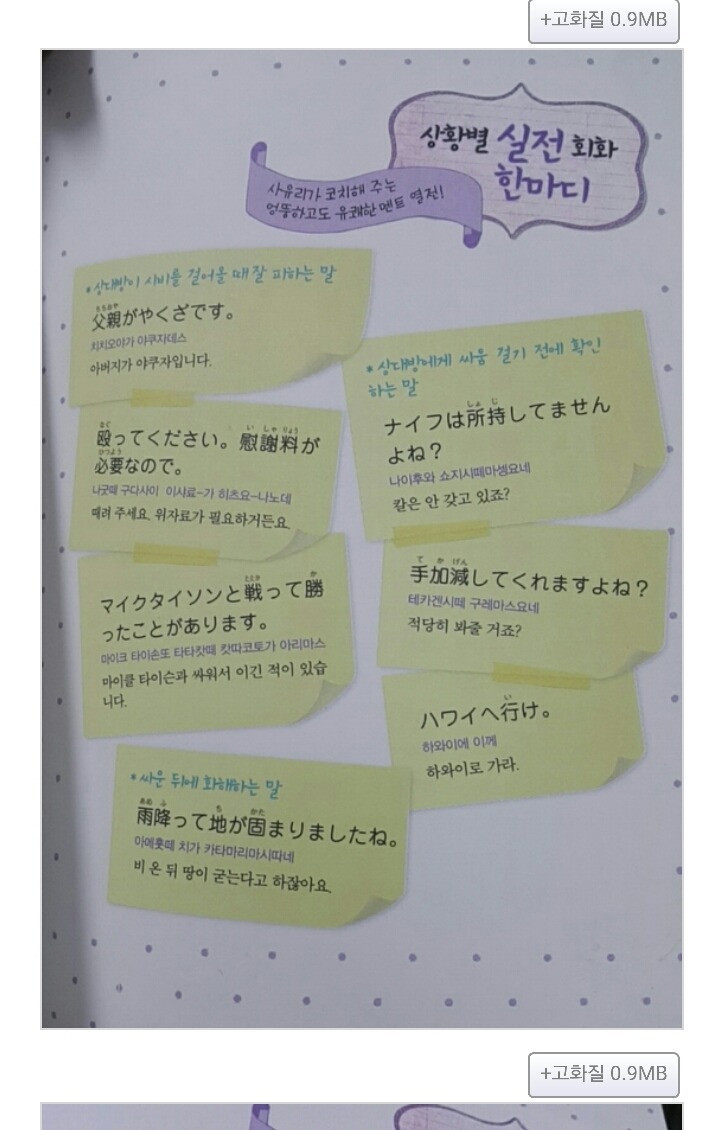 +고화질 0.9MB
상황별 실전 회화
한마디
사유리가 코치해 주는
엉뚱하고도 유쾌한 멘트 열전!
•상대방이 시비를 걸어올 때 잘 피하는 말
ちちおや
父親がやくざです。
치치오야가 야쿠자데스
아버지가 야쿠자입니다.
なぐ い しゃ りょう
殴ってください。慰謝料が
ひつよう
必要なので。
나굿떼 구다사이 이샤료-가 히츠요-나노데
때려 주세요. 위자료가 필요하거든요.
たたか か
マイクタイソンと戦って勝
ったことがあります。
마이크 타이손또 타타캇떼 캇따코토가 아리마스
마이클 타이슨과 싸워서 이긴 적이 있습
니다.
•상대방에게 싸움 걸기 전에 확인
하는 말
しょ じ
ナイフは所持してません
よね？
나이후와 쇼지시떼마셍요네
칼은 안 갖고 있죠?
て か げん
手加減してくれますよね？
테카겐시떼 구레마스요네
적당히 봐줄 거죠?
い
ハワイへ行け。
하와이에 이께
하와이로 가라.
•싸운 뒤에 화해하는 말
あめ ふ ち かた
雨降って地が固まりましたね。
아메훗떼 치가 카타마리마시따네
비 온 뒤 땅이 굳는다고 하잖아요.
+고화질 0.9MB